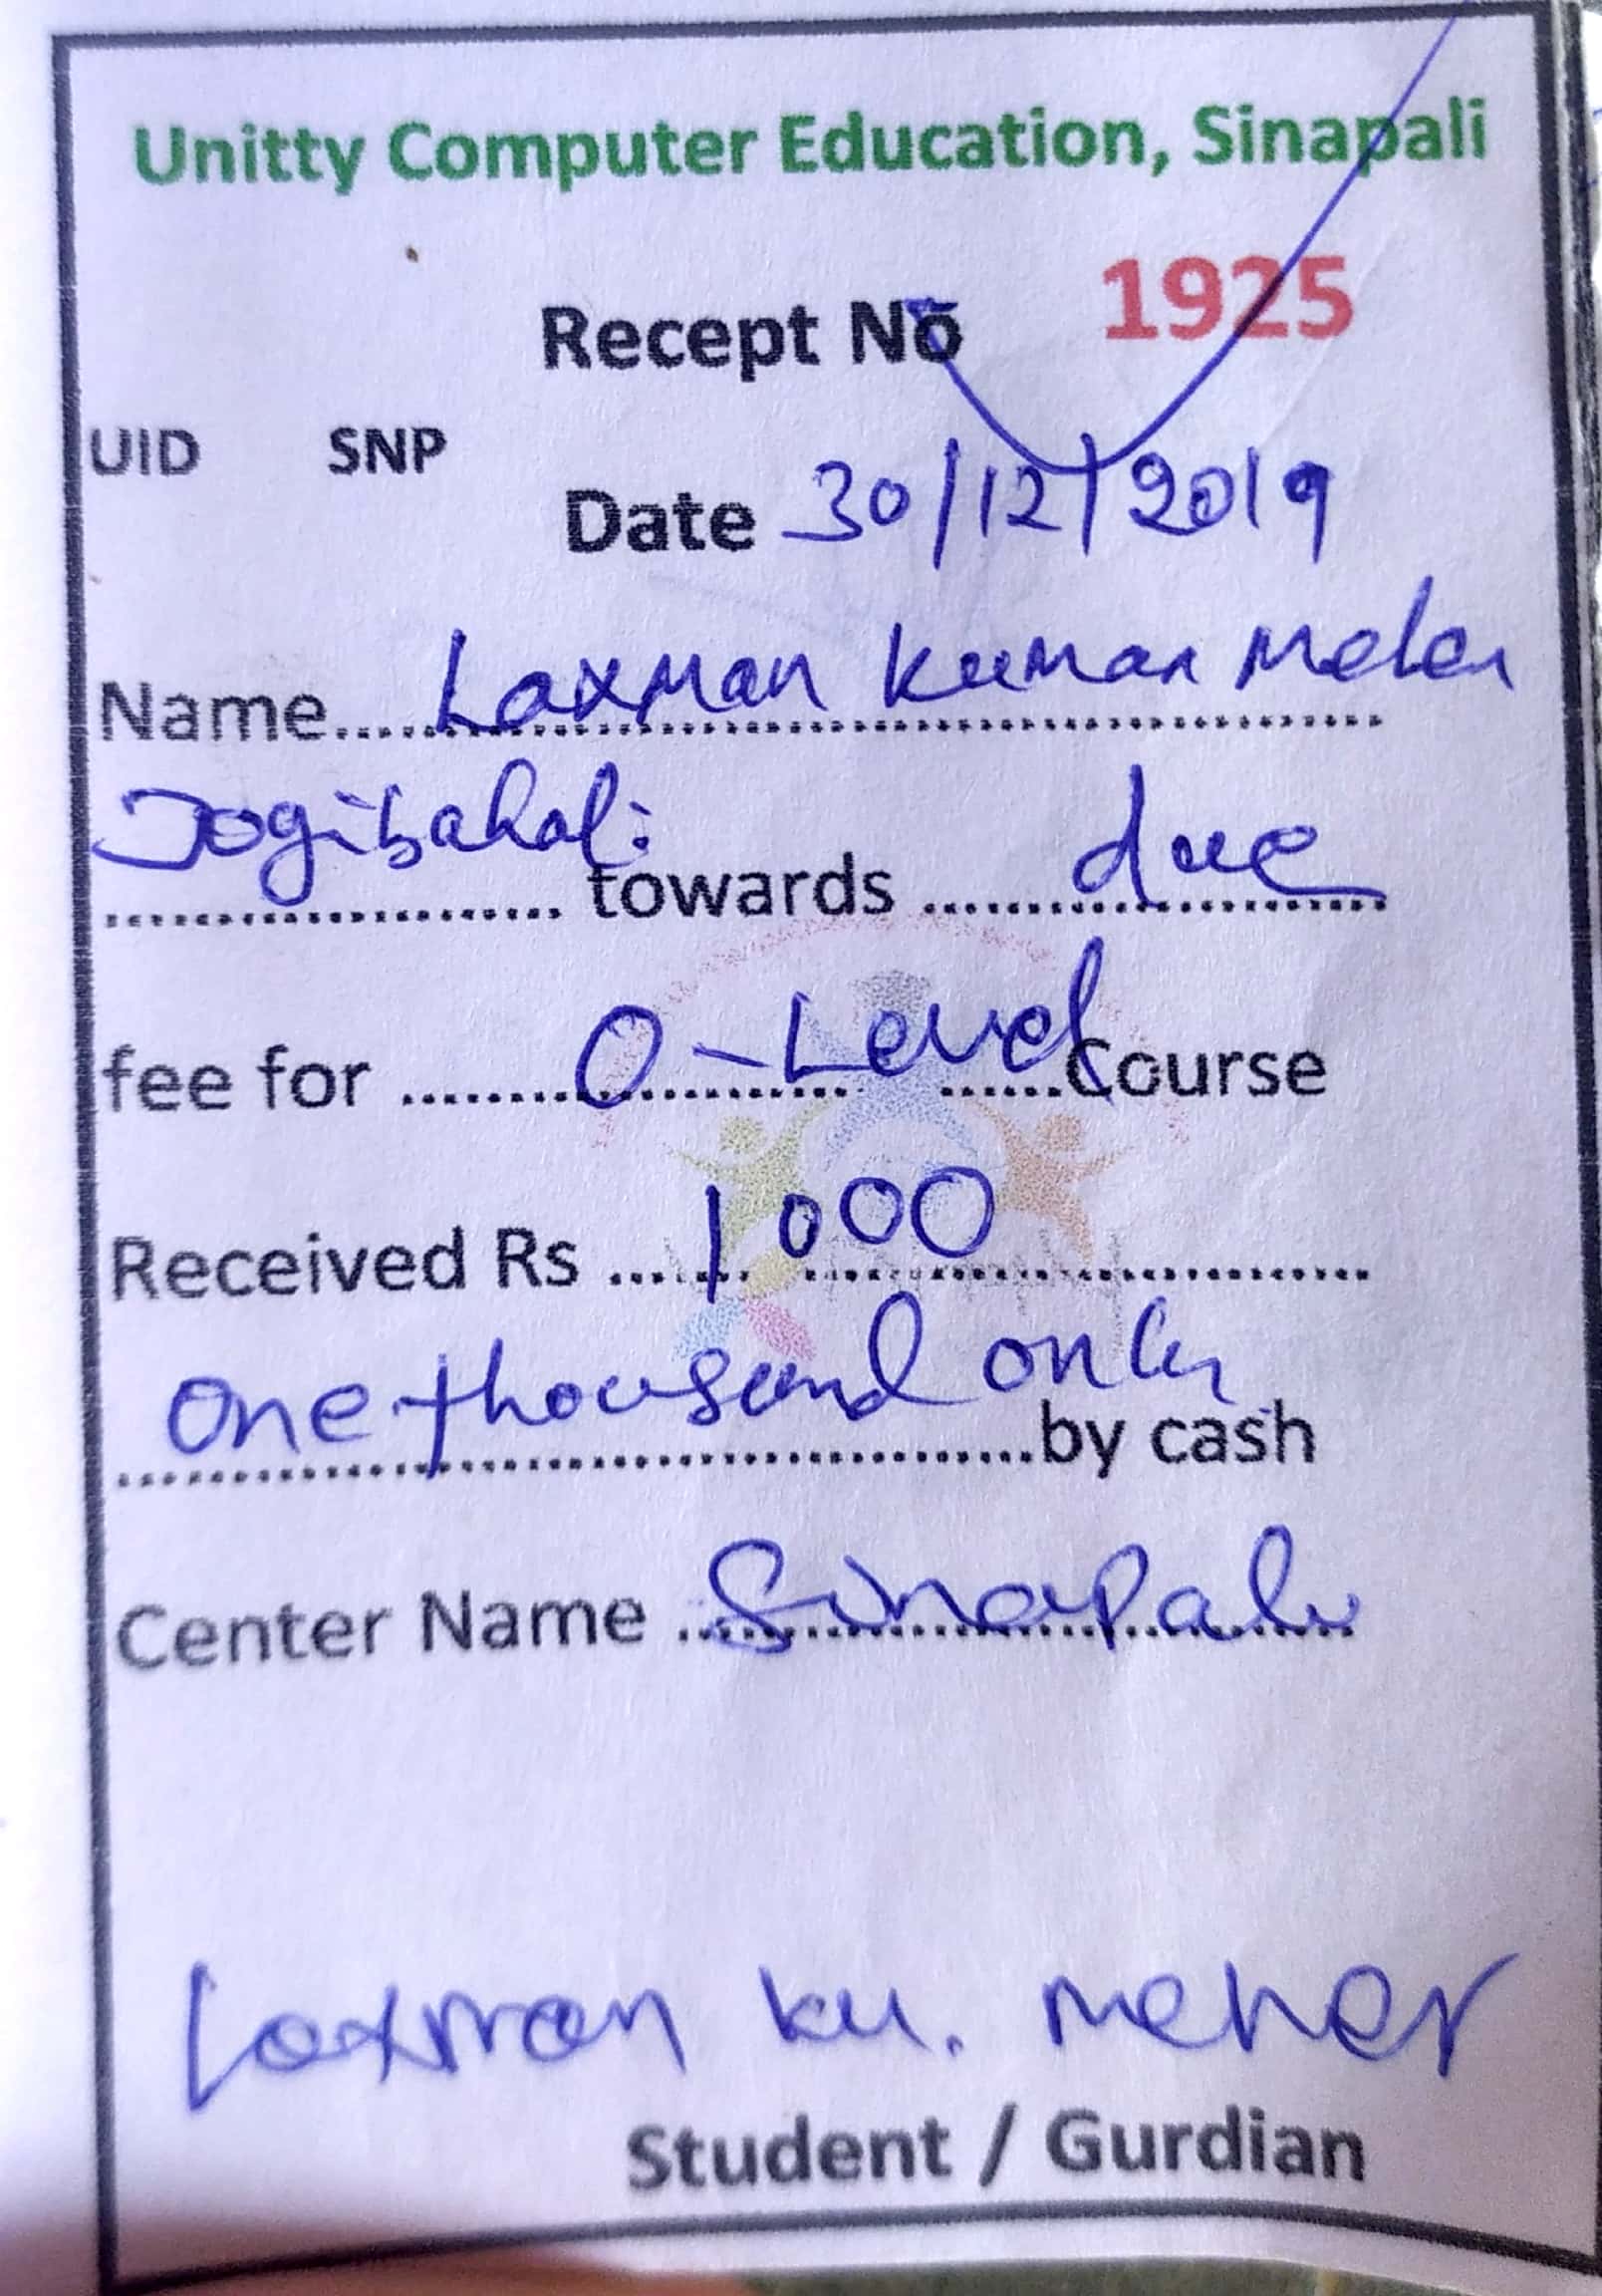 Unitty Computer Education, Sinapali
Recept No 1925
UID SNP
Date 30/12/2019
Name.....Laxman Kumar Meher
Jogibahal:
..................... towards ..... due
fee for ........ O-Level ......Course
Received Rs ...... 1000
One thousand only
.....................by cash
Center Name ...Sinapali
Laxman ku. meher
Student / Gurdian